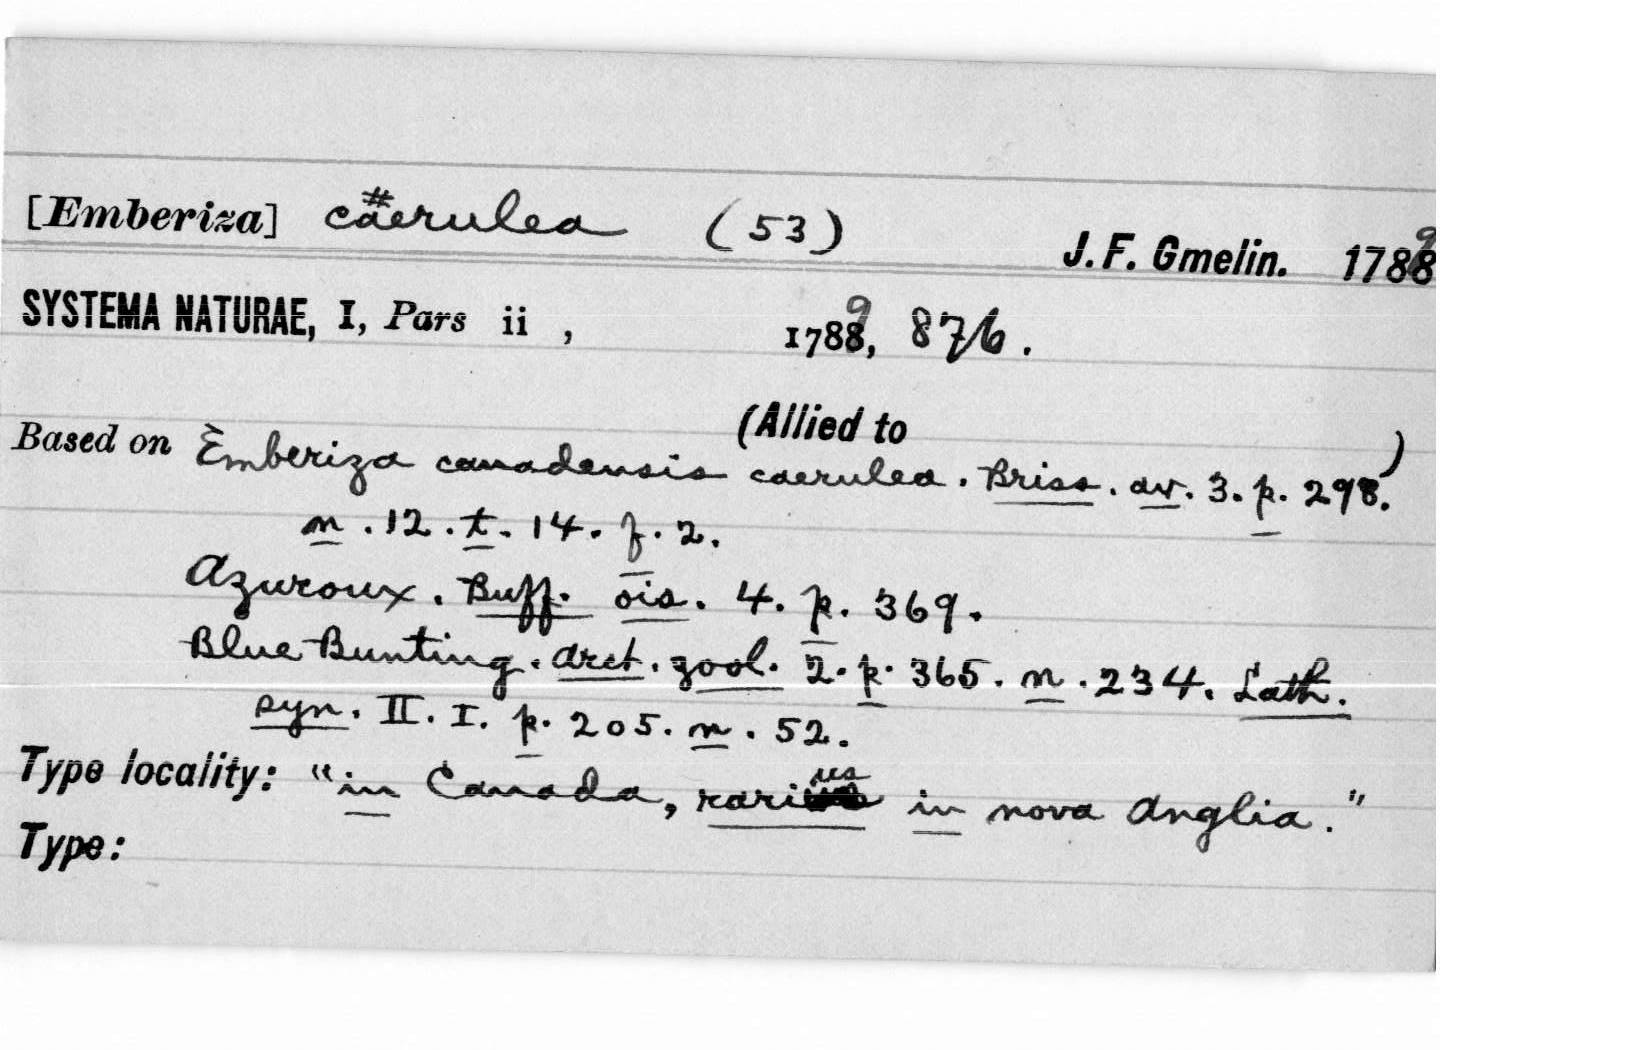 [Emberiza] cäerulea # (53) J. F. Gmelin. 1789
SYSTEMA NATURAE, I, Pars ii , 1789, 876.
(Allied to )
Based on Emberiza canadensis caerulea. Briss. av. 3. p. 298.
n. 12. t. 14. f. 2.
Azuroux. Buff. ois. 4. p. 369.
Blue Bunting. Arct. zool. 2. p. 365. n. 234. Lath.
syn. II. I. p. 205. n. 52.
Type locality: "in Canada, rarius in nova Anglia."
Type: